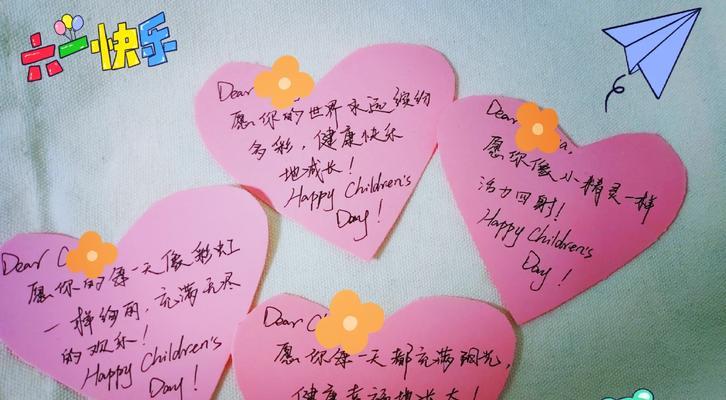 六一快乐
Dear
愿你的世界永远缤纷
多彩，健康快乐
地成长！
Happy Children's
Day!
Dear a,
愿你像小精灵一样
活力四射！
Happy Children's
Day!
Dear C
愿你的每一天像彩虹
一样绚丽，充满无尽
的欢乐！
Happy Children's
Day!
Dear C
愿你每一天都充满阳光，
健康幸福地长大！